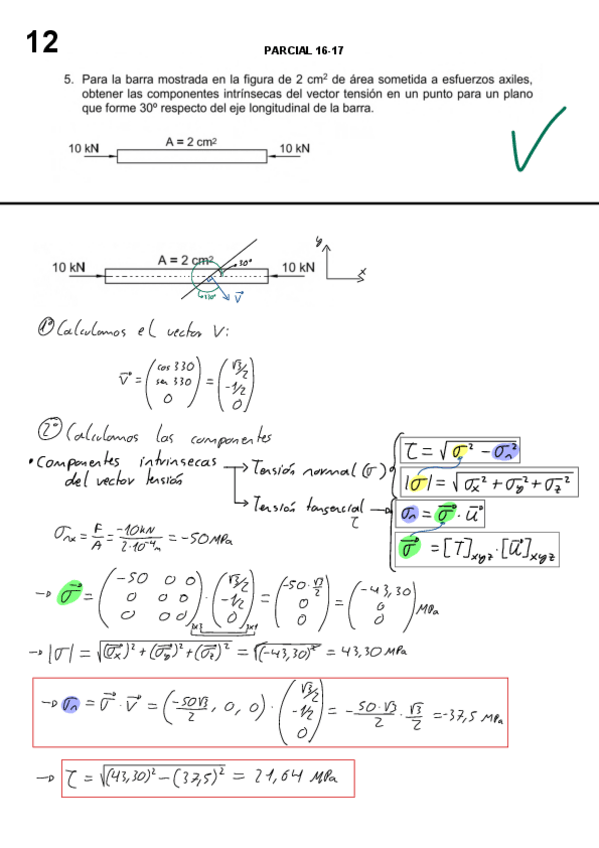 12
PARCIAL 16-17
5. Para la barra mostrada en la figura de 2 cm² de área sometida a esfuerzos axiles,
obtener las componentes intrínsecas del vector tensión en un punto para un plano
que forme 30º respecto del eje longitudinal de la barra.
10 kN A = 2 cm² 10 kN
y
x
10 kN A = 2 cm² 30° 10 kN
V⃗
1º Calculamos el vector V:
V⃗ = (cos 330, sen 330, 0) = (√3/2, -1/2, 0)
2º Calculamos las componentes
• Componentes intrínsecas → Tensión normal (σ)
del vector tensión → Tensión tangencial τ
τ = √(σ² - σn²)
|σ| = √(σx² + σy² + σz²)
σn = σ⃗ · u⃗
σ⃗ = [T]xyz · [u⃗]xyz
σnx = F/A = -10kN / 2·10⁻⁴m = -50MPa
→ σ⃗ = (-50 0 0, 0 0 0, 0 0 0)3x3 · (√3/2, -1/2, 0)3x1 = (-50·√3/2, 0, 0) = (-43,30, 0, 0) MPa
→ |σ| = √((σ⃗x)² + (σ⃗y)² + (σ⃗z)²) = √((-43,30)²) = 43,30 MPa
→ σn = σ⃗ · V⃗ = (-50√3/2, 0, 0) · (√3/2, -1/2, 0) = - 50·√3/2 · √3/2 = -37,5 MPa
→ τ = √((43,30)² - (37,5)²) = 21,64 MPa